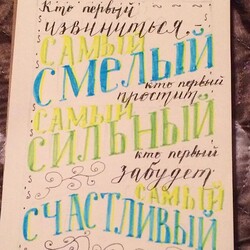 Кто первый
извиниться.
САМЫЙ
СМЕЛЫЙ
кто первый
простит
САМЫЙ
СИЛЬНЫЙ
кто первый
забудет
САМЫЙ
СЧАСТЛИВЫЙ